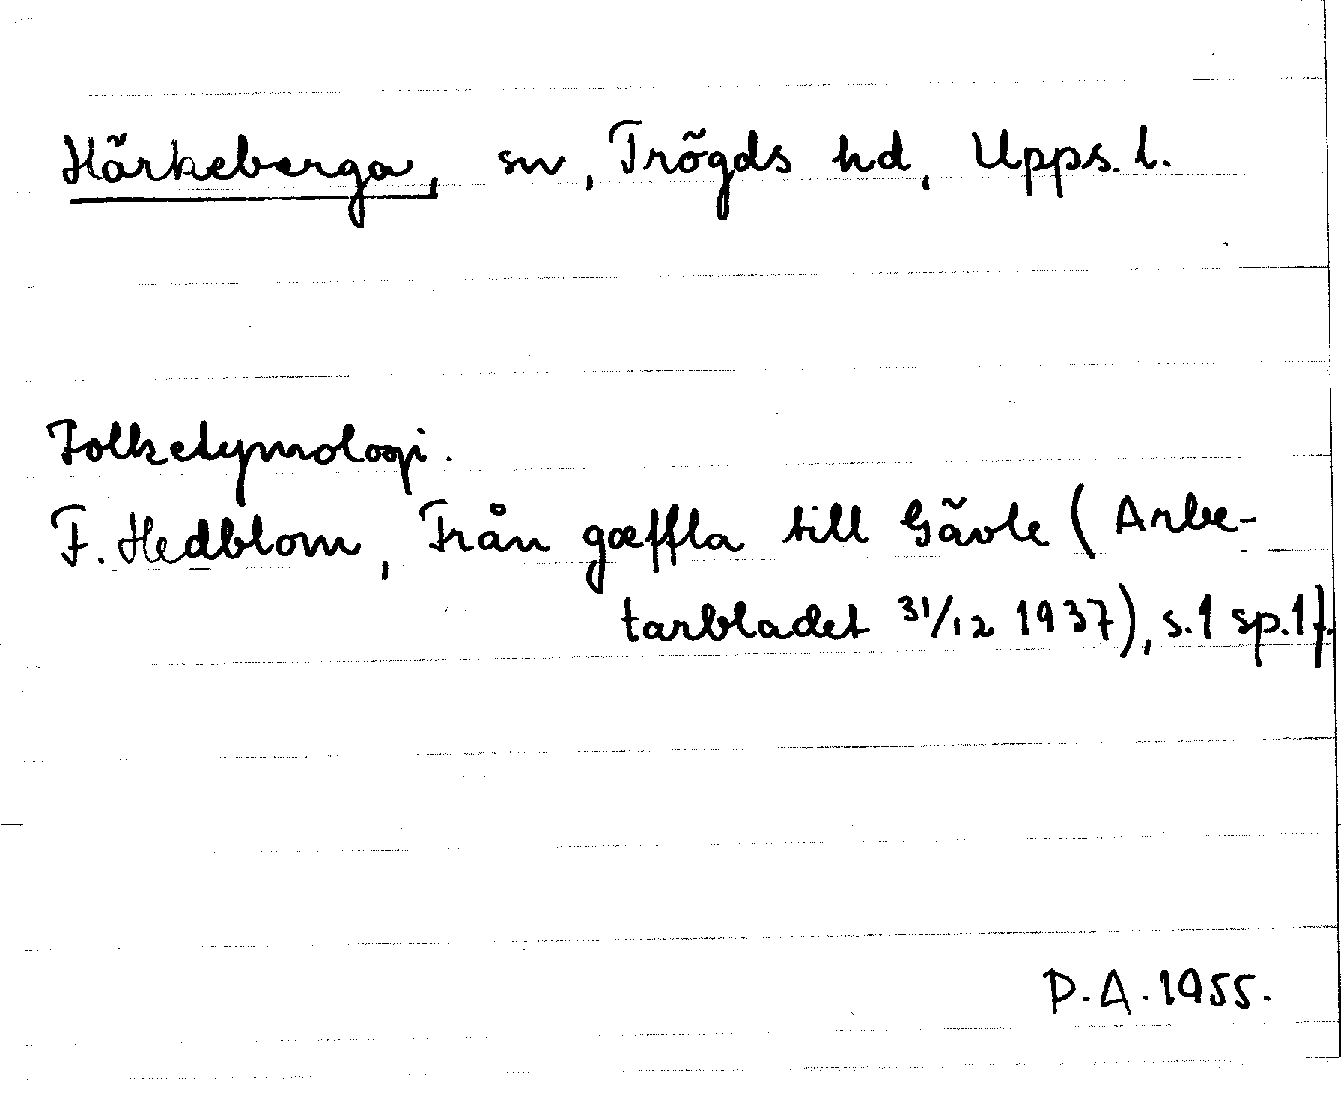 Härkeberga, sn, Trögds hd, Upps. l.
Folketymologi.
F. Hedblom, Från gæffla till Gävle (Arbe-
tarbladet 31/12 1937), s.1 sp.1f.
P.A. 1955.